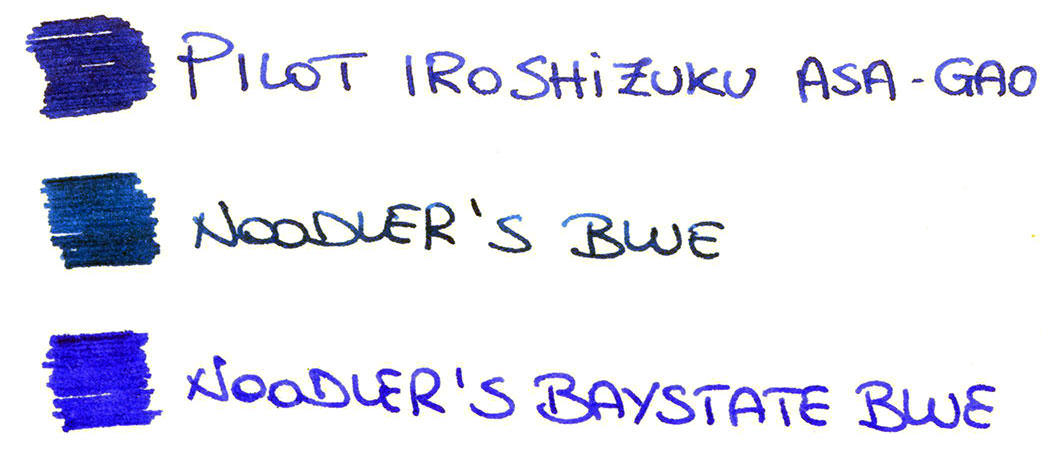 PILOT IROSHiZUKU ASA-GAO
NOODLER'S BLUE
NOODLER'S BAYSTATE BLUE